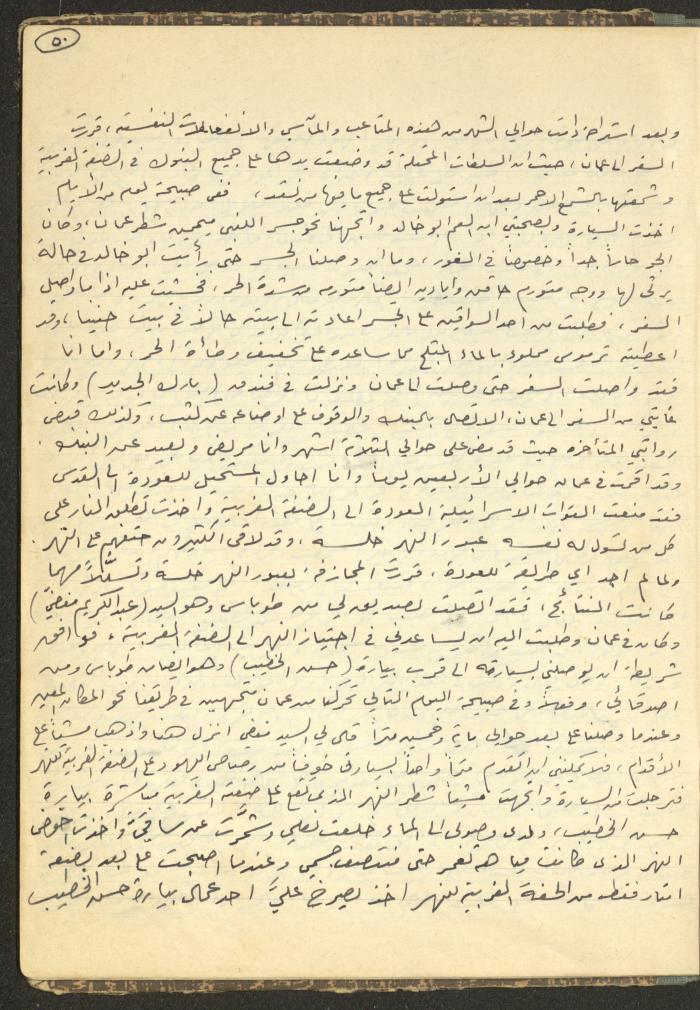 ٥٠
وبعد استراحة دامت حوالي الشهر من هذه المتاعب والمآسي والانفعالات النفسية، قررت
السفر الى عمان، حيث ان السلطات المحتلة قد وضعت يدها على جميع البنوك في الضفة الغربية
وشمعتها بالشمع الاحمر بعد ان استولت على جميع ما فيها من نقد، ففي صبيحة يوم من الأيام
اخذت السيارة وبصحبتي ابن العم ابو خالد واتجهنا نحو جسر اللنبي ميممين شطر عمان، وكان
الجو حاراً جداً وخصوصاً في الغور، وما ان وصلنا الجسر حتى رأيت ابو خالد في حالة
يرثى لها ووجه متورم حاقن وأياديه ايضاً متورمه من شدة الحر، فخشيت عليه اذا ما واصل
السفر، فطلبت من احد السواقين على الجسر اعادته الى بيته حالاً في بيت حنينا، وقد
اعطيته ترموس مملوء بالماء المثلج مما ساعده على تخفيف وطأة الحر، واما انا
فقد واصلت السفر حتى وصلت الى عمان ونزلت في فندق (بارك الجديد) وكانت
غايتي من السفر الى عمان، الاتصال بالبنك والوقوف على اوضاعه عن كثب، وكذلك قبض
رواتبي المتأخره حيث قد مضى على حوالي الثلاثة اشهر وانا مريض وبعيد عن البنك.
وقد اقمت في عمان حوالي الأربعين يوماً وانا احاول المستحيل للعودة الى القدس
فقد منعت القوات الاسرائيلية العودة الى الضفة الغربية واخذت تطلق النار على
كل من تسول له نفسه عبور النهر خلسة، وقد لاقى الكثيرون حتفهم على النهر.
ولما لم اجد اي طريقة للعودة، قررت المجازفة بعبور النهر خلسة وتسللاً مهما
كانت النتائج، فقد اتصلت بصديق لي من طوباس وهو السيد (عبد الكريم)
وكان في عمان وطلبت اليه ان يساعدني في اجتياز النهر الى الضفة الغربية، فوافق
شريطة ان يوصلني بسيارته الى قرب بيارة (حسن الخطيب) وهو ايضا من طوباس ومن
اصدقائي، وفعلاً وفي صبيحة اليوم التالي تحركنا من عمان متجهين في طريقنا نحو المكان المعين
وعندما وصلنا على بعد حوالي ماية وخمسين متراً قال لي السيد انزل هنا واذهب مشياً على
الأقدام، فلا يمكنني ان اتقدم متراً واحداً بسيارتي خوفاً من رصاص اليهود على الضفة الغربية للنهر
فترجلت من السيارة واتجهت مشياً شطر النهر الذي تقع على ضفته الغربية مباشرة بيارة
حسن الخطيب، ولدى وصولي الى الماء خلعت نعلي وشمَّرت عن ساقيَّ واخذت اخوض
النهر الذي كانت مياهه تغمر حتى منتصف جسمي وعندما اصبحت على بعد بضعة
امتار فقط من الضفة الغربية للنهر اخذ يصرخ عليَّ احد عمال بيارة حسن الخطيب